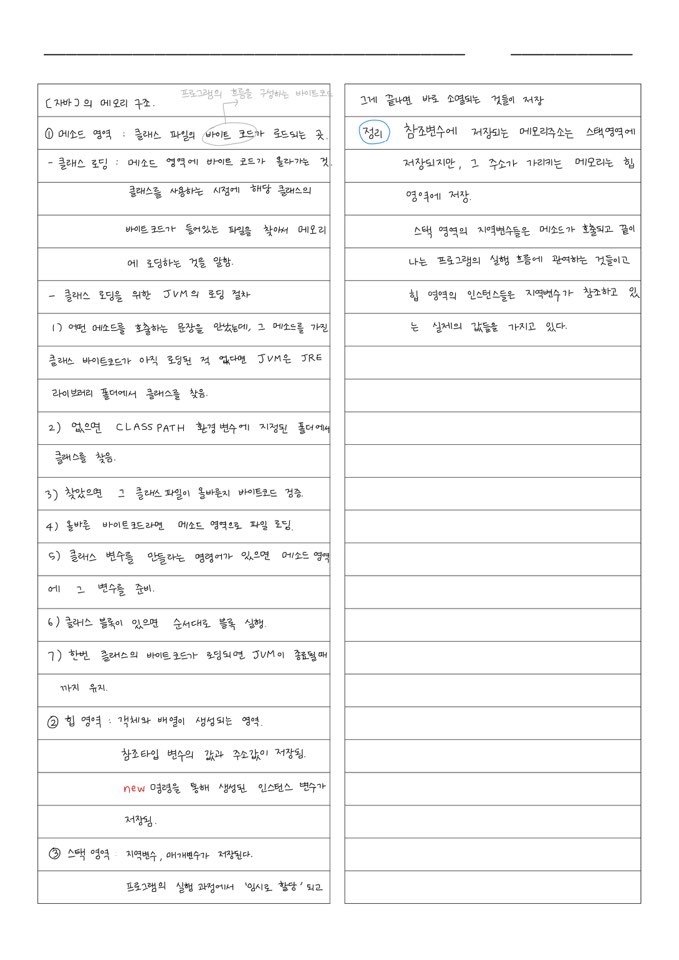 프로그램의 흐름을 구성하는 바이트코드
[자바]의 메모리 구조.
① 메소드 영역 : 클래스 파일의 바이트 코드가 로드되는 곳.
- 클래스 로딩 : 메소드 영역에 바이트 코드가 올라가는 것.
클래스를 사용하는 시점에 해당 클래스의
바이트코드가 들어있는 파일을 찾아서 메모리
에 로딩하는 것을 말함.
- 클래스 로딩을 위한 JVM의 로딩 절차
1) 어떤 메소드를 호출하는 문장을 만났는데, 그 메소드를 가진
클래스 바이트코드가 아직 로딩된 적 없다면 JVM은 JRE
라이브러리 폴더에서 클래스를 찾음.
2) 없으면 CLASSPATH 환경변수에 지정된 폴더에서
클래스를 찾음.
3) 찾았으면 그 클래스 파일이 올바른지 바이트코드 검증.
4) 올바른 바이트코드라면 메소드 영역으로 파일 로딩.
5) 클래스 변수를 만들라는 명령어가 있으면 메소드 영역
에 그 변수를 준비.
6) 클래스 블록이 있으면 순서대로 블록 실행.
7) 한번 클래스의 바이트코드가 로딩되면 JVM이 종료될 때
까지 유지.
② 힙 영역 : 객체와 배열이 생성되는 영역.
참조타입 변수의 값과 주소값이 저장됨.
new 명령을 통해 생성된 인스턴스 변수가
저장됨.
③ 스택 영역 : 지역변수, 매개변수가 저장된다.
프로그램의 실행 과정에서 '임시로 할당' 되고
그게 끝나면 바로 소멸되는 것들이 저장
정리 참조변수에 저장되는 메모리주소는 스택영역에
저장되지만, 그 주소가 가리키는 메모리는 힙
영역에 저장.
스택 영역의 지역변수들은 메소드가 호출되고 끝이
나는 프로그램의 실행 흐름에 관여하는 것들이고
힙 영역의 인스턴스들은 지역변수가 참조하고 있
는 실제의 값들을 가지고 있다.